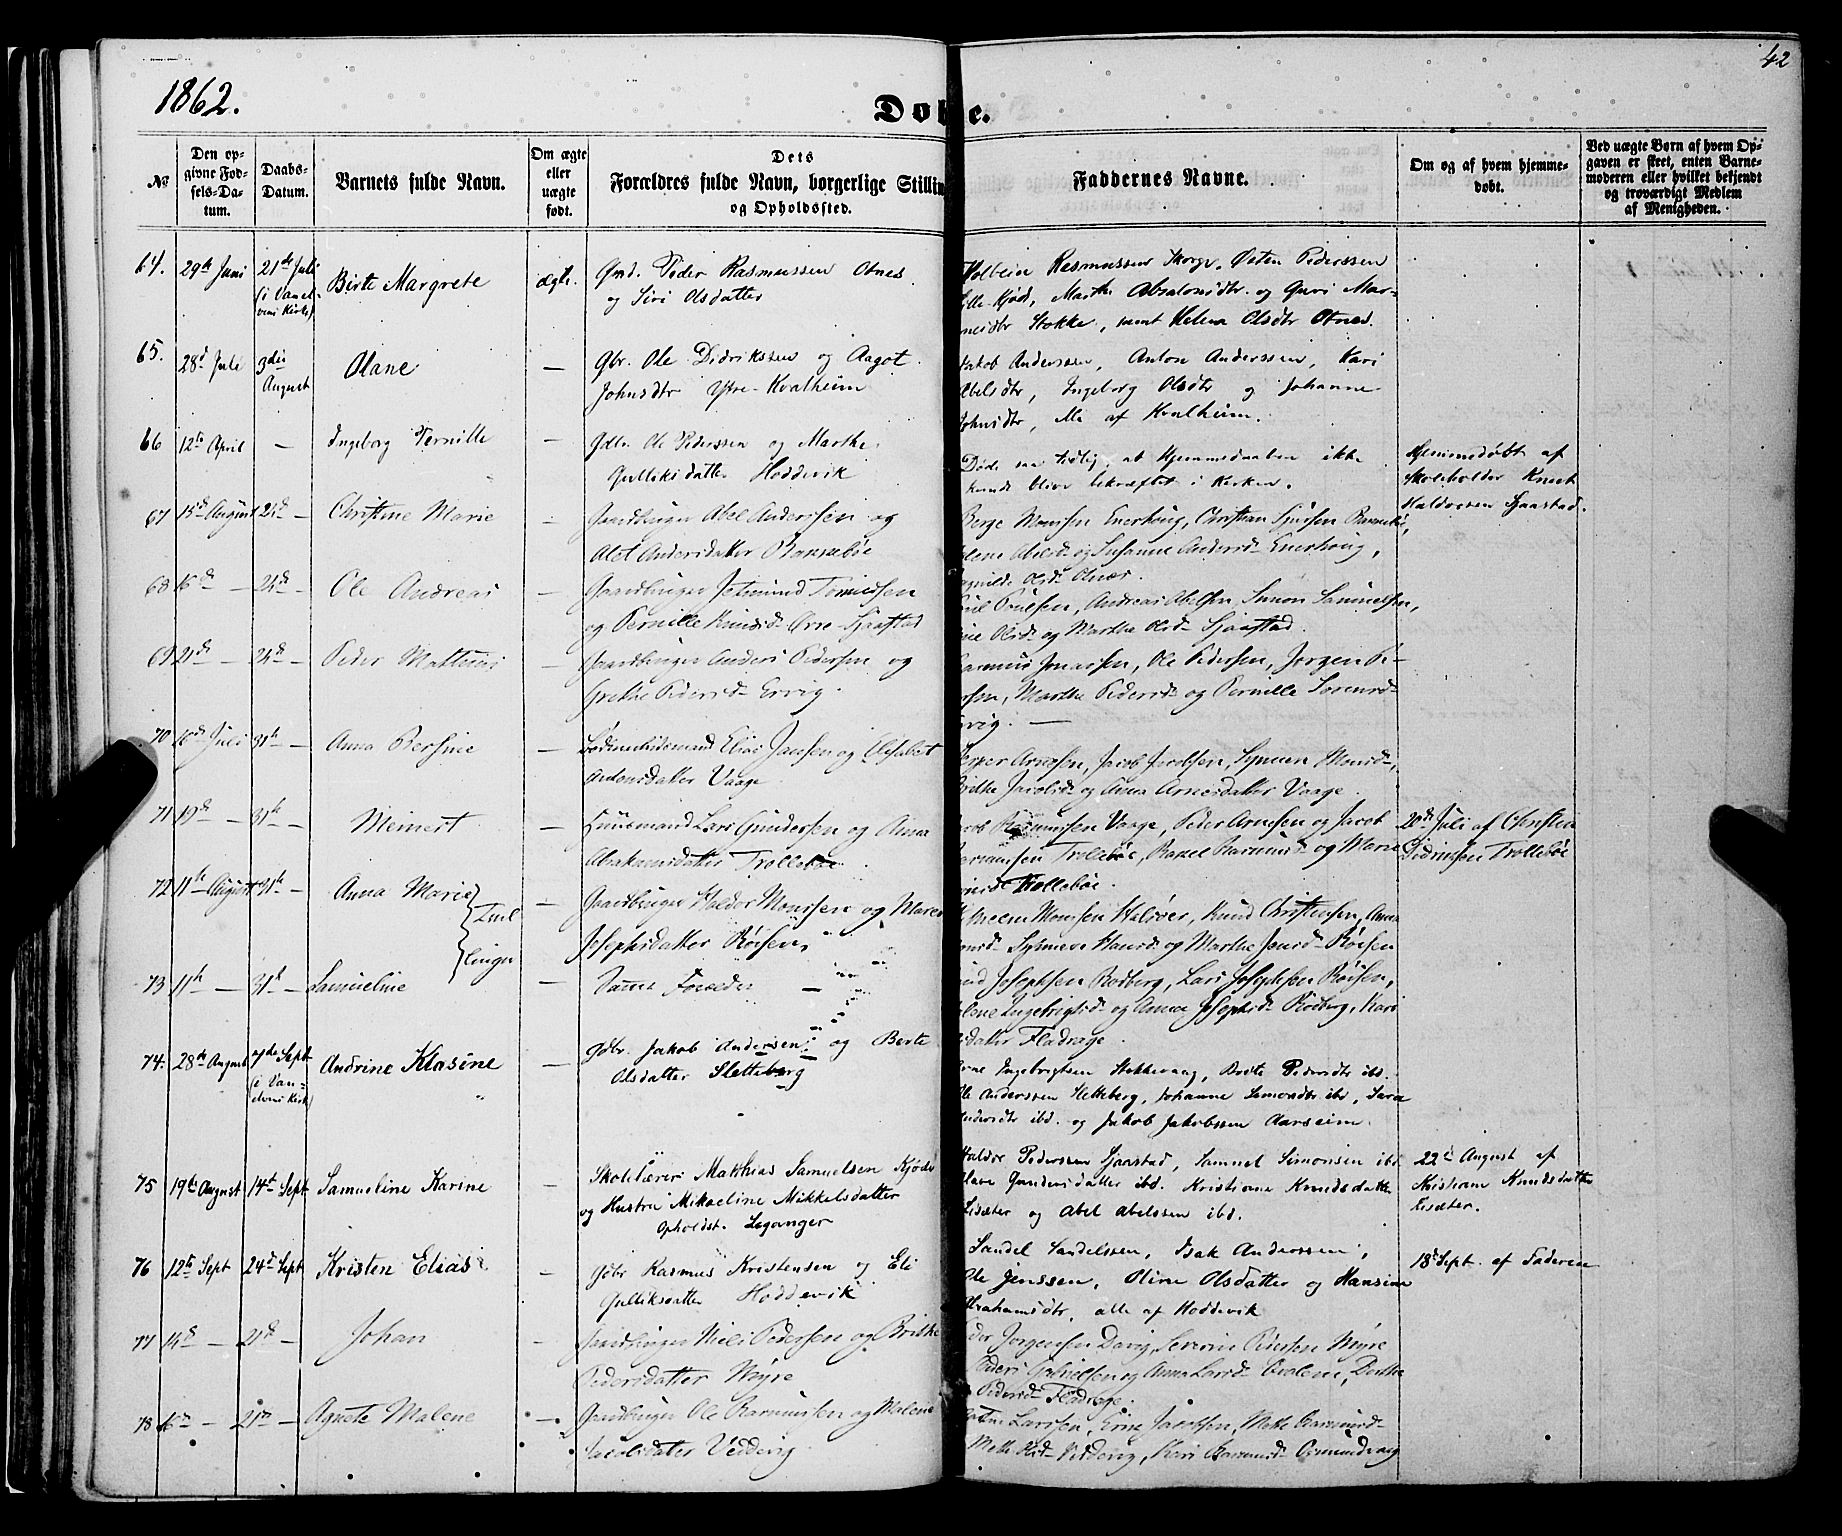 42
1862.
Døbte.
No
Den opgivne Fødsels-Datum.
Daabs-Datum.
Barnets fulde Navn.
Om ægte eller uægte født.
Dets Forældres fulde Navn, borgerlige Stilling og Opholdssted.
Faddernes Navne.
Om og af hvem hjemmedøbt.
Ved uægte Børn af hvem Opgaven er skeet, enten Barnemoderen eller hvilket bekjendt og troværdigt Medlem af Menigheden.
64. 29de Juni 21de Juli (i Vanelvens Kirke) Birte Margrete ægte. Gmd. Peder Rasmussen Otnes
og Siri Olsdatter
Rasmussen Østen Pederssen
Marthe Absalonsdtr. og Guri
Stokke, samt Helena Olsdtr Otnes.
65. 28d Juli 3die August Olane — Gbr. Ole Didrikssen og Aagot
Johnsdtr Ytre-Kvalheim
Jakob Anderssen, Anton Anderssen, Kari
Abelsdtr, Ingeborg Olsdtr og Johanne
Johnsdtr, Alle af Kvalheim.
66 12te April — Ingeborg Pernille — Gdbr. Ole Pederssen og Marthe
Gulliksdatter Hoddevik
Døde saa tidlig, at Hjemmedaaben ikke
kunde blive bekræftet i Kirken.
Hjemmedøbt af
Skoleholder Knut
Haldorssen Sjaastad.
67 15de August 24de — Christine Marie — Gaardbruger Abel Anderssen og
Alet Andersdatter
Berge Monssen Enerhoug, Christian
og Susanne Andersd. Enerhoug,
Olsd. Otnes.
68 16de — 24de — Ole Andreas — Gaardbruger
og Pernille Knudsd. Øvre-Sjaastad
Andreas Abelsen, Simon Samuelsen,
Olsd. og Marthe Olsd. Sjaastad.
69 21de — 24de — Peder Mathias — Gaardbruger Anders Pedersen og
Grethe Pedersd. Ervig.
Rasmus Jonassen, Ole Pedersen, Jørgen Pe-
dersen, Marthe Pedersd. og Pernille Sørensd.
Ervig. —
70 16de Juli 31te — Anna Bersine — Elias Janssen og Elisabet
Antonsdatter Vaage
Jesper Arnesen, Jacob Jacobsen, Synneve Monsd.,
Brithe Jacobsd. og Anna Arnesdatter Vaage.
71 19de — 31te — Meinert — Huusmand Lars Gundersen og Anna
Abrahamsdatter Trollebøe
Rasmussen Vaage, Peder Arnesen og Jacob
Rasmussen Trollebøe, Rakel Rasmusd. og Maren
Trollebøe.
20de Juli af Christen
Trollebøe
72 11te August 31te — Anna Marie — Gaardbruger Haldor Monssen og Maren
Josephsdatter Røesen
Monssen Knud Christensen, Anna
Synneve Hansd. og Marthe Jensd. Røesen
Tvil
linger
73 11te — 31te — Samueline — Samme Forældre —
Knud Josephsen Rødberg, Lars Josephsen Røesen,
Ingebrigtsd. og Anna Josephsd. Rødberg, Kari
Fladrage.
74. 28de August 7de Sept (i Vanelvens Kirke) Andrine Klasine — Gdbr. Jakob Andersen og Berte
Olsdatter Sletteberg
Arne Ingebrigtsen Stokkevaag, Brite Pedersdtr ibd.
Ole Anderssen Sletteberg, Johanne Simondtr ibd, Sara
Andersdtr ibd. og Jakob Jakobssen Aarseim.
75 19de August 14de Sept Samueline Karine — Skolelærer Matthias Samuelsen Kjøde
og Hustru Mikaeline Mikkelsdatter
Opholdst. Leganger
Haldor Pederssen Sjaastad, Samuel Simonsen ibd
Gundersdatter ibd. Kristiane Knudsdatter
Lisæter og Abel Abelssen ibd.
22de August af
Kristiane Knudsdatter
Lisæter.
76 12te Sept 24de Sept Kristen Elias — Gdbr Rasmus Kristensen og Eli
Gulliksdatter Hoddevik
Sandel Sandelssen, Isak Anderssen,
Ole Jenssen, Oline Olsdatter og Hansine
Abrahamsdtr, alle af Hoddevik
18d Sept. af Faderen
77 14de — 21de — Johan — Gaardbruger Niels Pedersen og Brithe
Pedersdatter Myre
Peder Jørgensen Myre
Peder Gabrielsen og Anna Larsd. Dorthe
Pedersd. Fladrage.
78 16de — 21de — Agnete Malene — Gaardbruger Ole Rasmussen og Malene
Jacobsdatter Vedvig
Larssen, Jacobsen, Mette Rasmusd.
Mette Vedvig, Kari Rasmusd. Osmundvaag